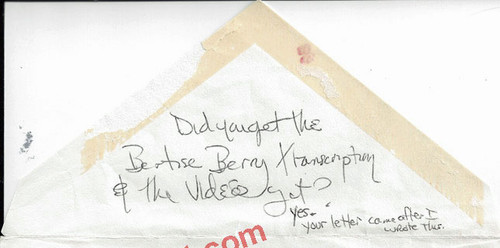 Did you get the
Bertise Berry Xtranscription
& the Video yet?
yes-
your letter came after I
wrote this.
.com